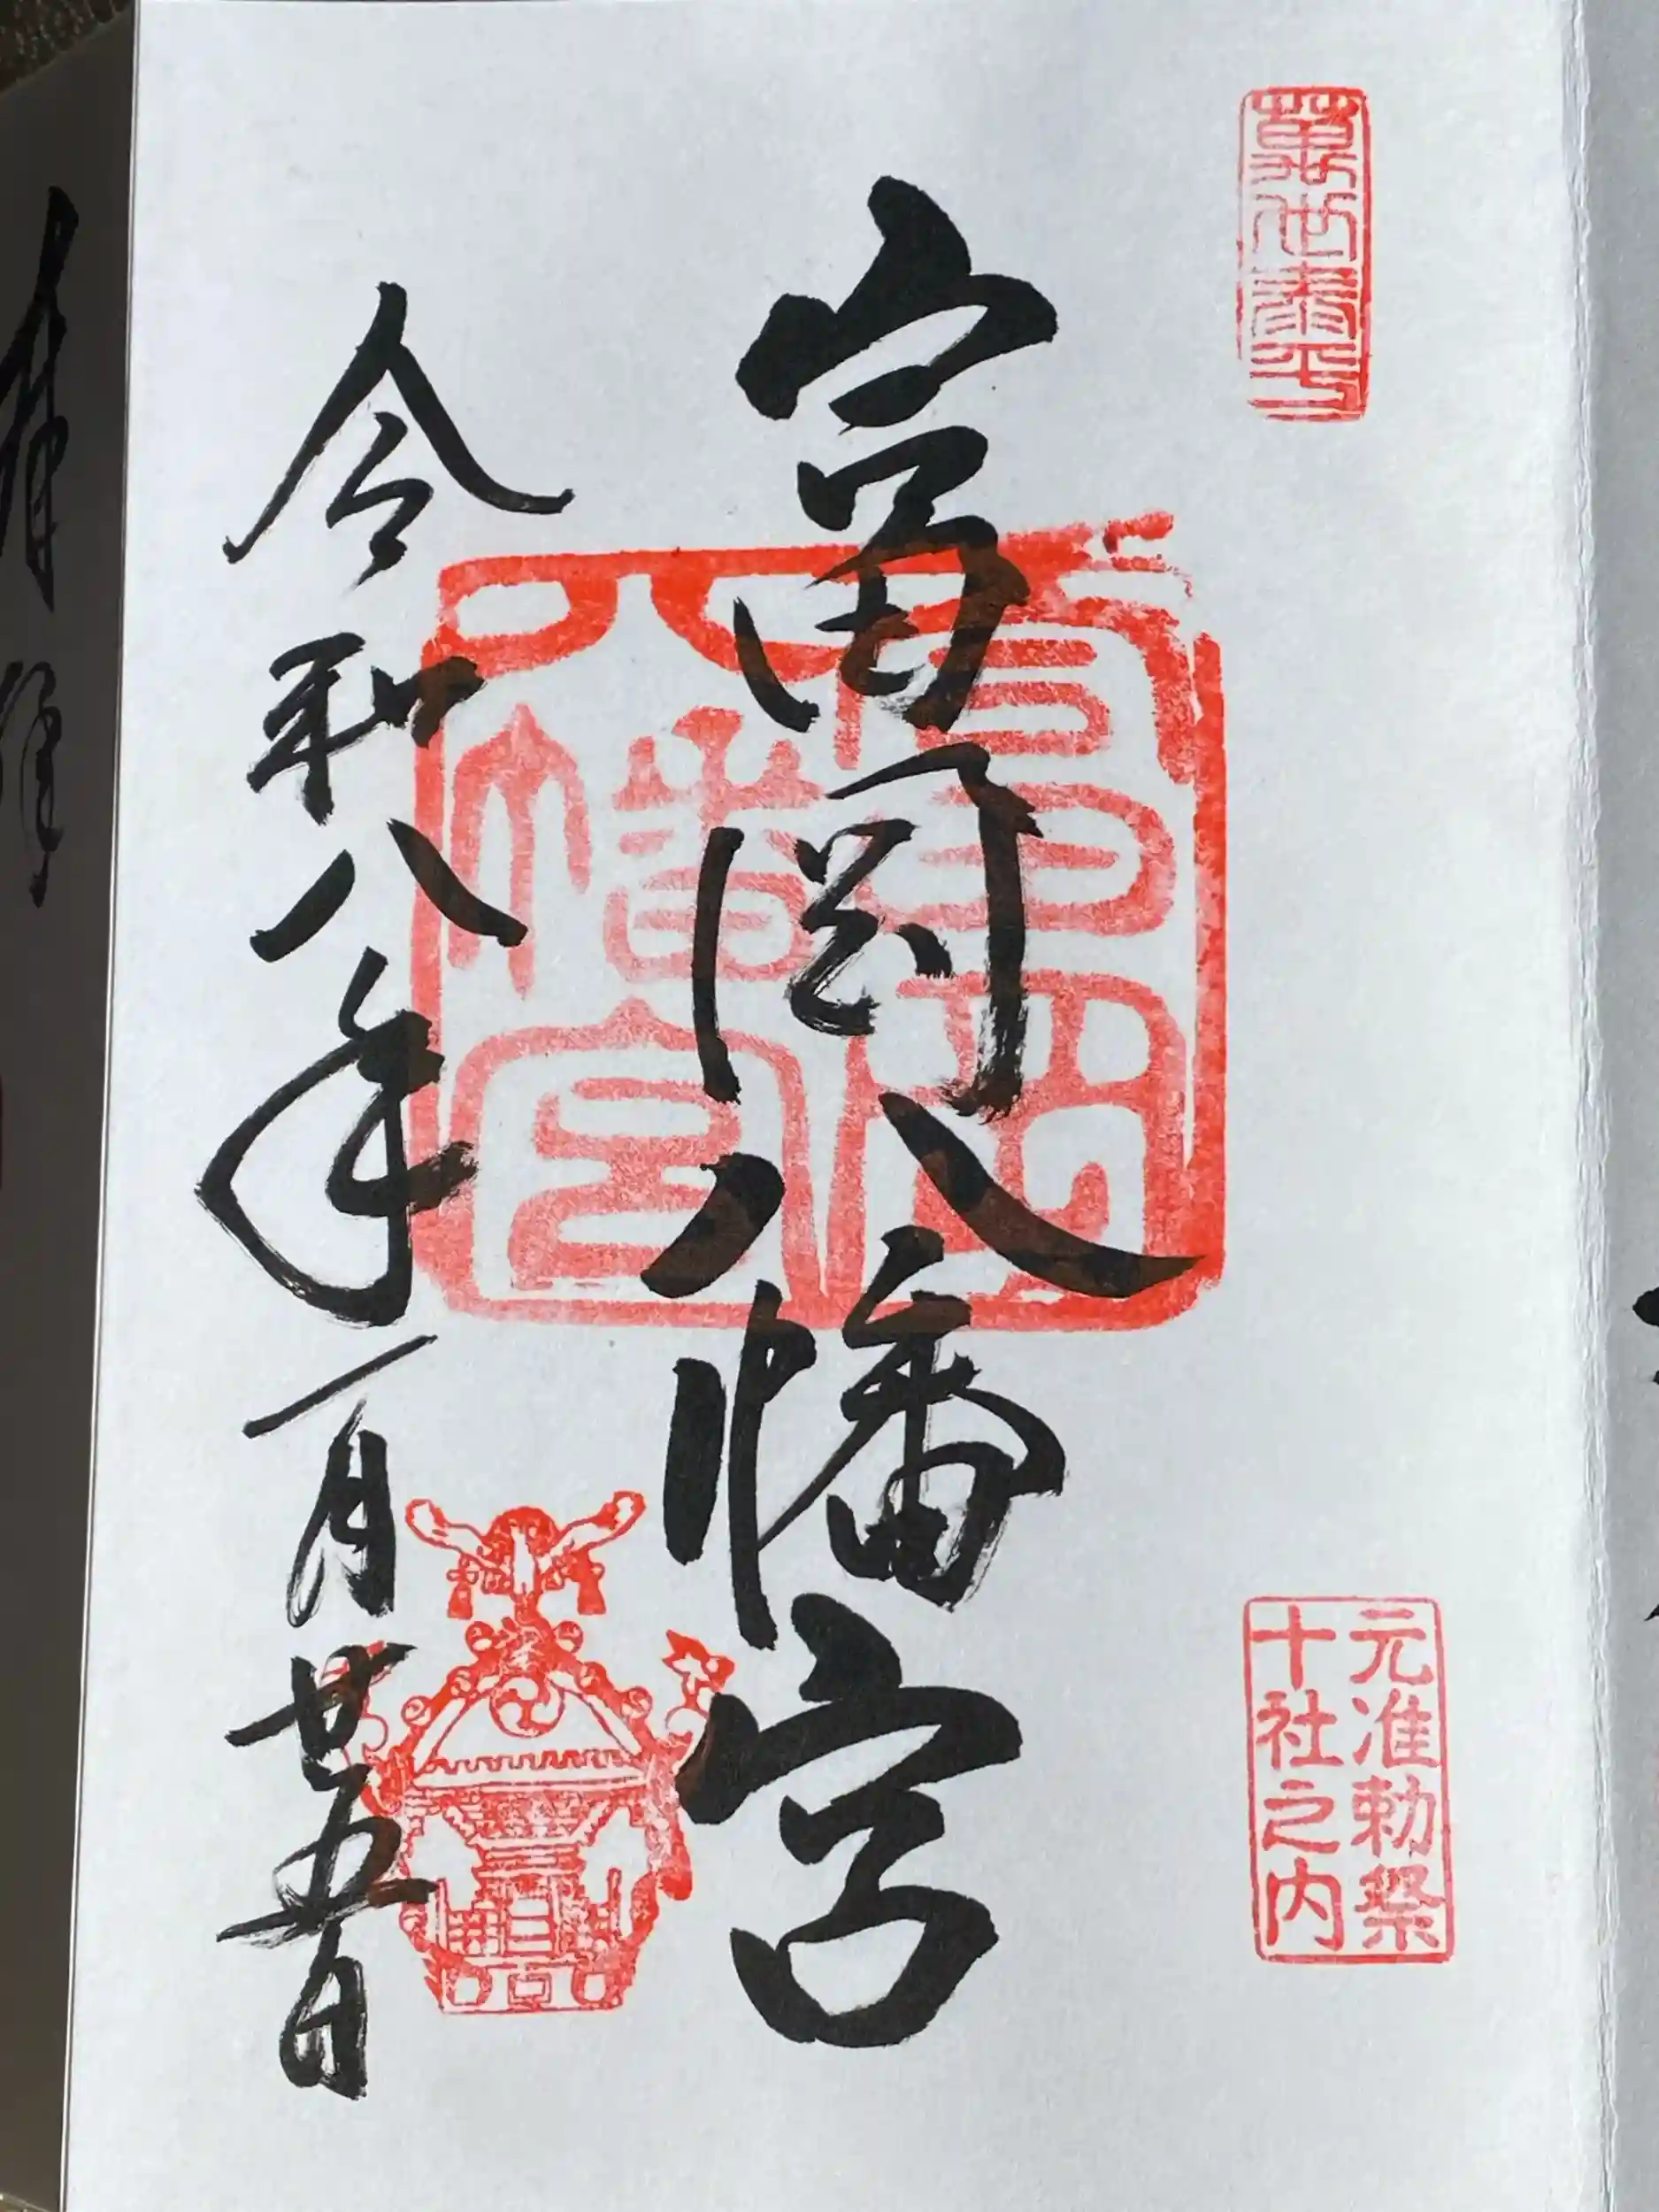 萬世泰平
元准勅祭
十社之内
富岡八幡宮
富岡
八幡宮
令和八年一月廿五日